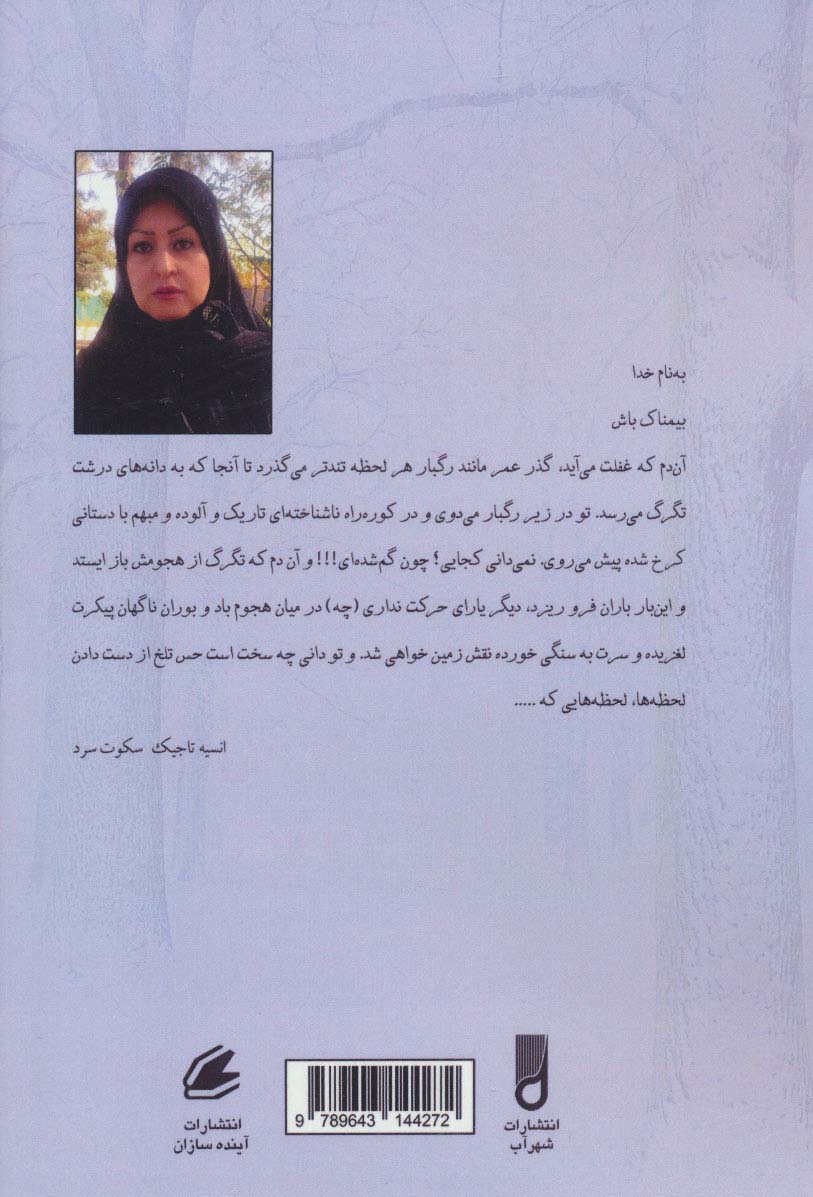 به‌نام خدا
بیمناک باش
آن‌دم که غفلت می‌آید، گذر عمر مانند رگبار هر لحظه تندتر می‌گذرد تا آنجا که به دانه‌های درشت
تگرگ می‌رسد. تو در زیر رگبار می‌دوی و در کوره‌راه ناشناخته‌ای تاریک و آلوده و مبهم با دستانی
کرخ شده پیش می‌روی. نمی‌دانی کجایی؟ چون گم‌شده‌ای!!! و آن دم که تگرگ از هجومش باز ایستد
و این‌بار باران فرو ریزد، دیگر یارای حرکت نداری (چه) در میان هجوم باد و بوران ناگهان پیکرت
لغزیده و سرت به سنگی خورده نقش زمین خواهی شد. و تو دانی چه سخت است حس تلخ از دست دادن
لحظه‌ها، لحظه‌هایی که .....
انسیه تاجیک سکوت سرد
انتشارات
شهرآب
9 789643 144272
انتشارات
آینده سازان